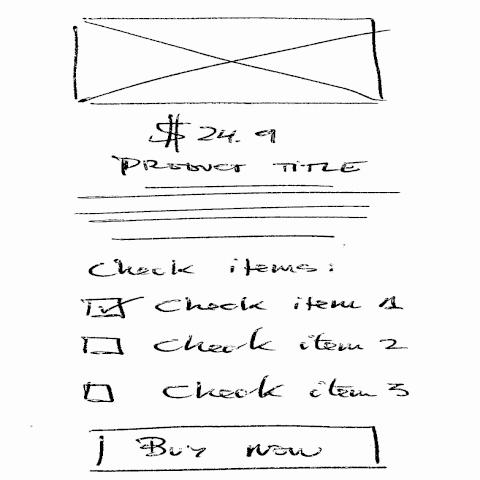 $ 24.9
PRODUCT TITLE
Check items:
Check item 1
Check item 2
Check item 3
Buy now